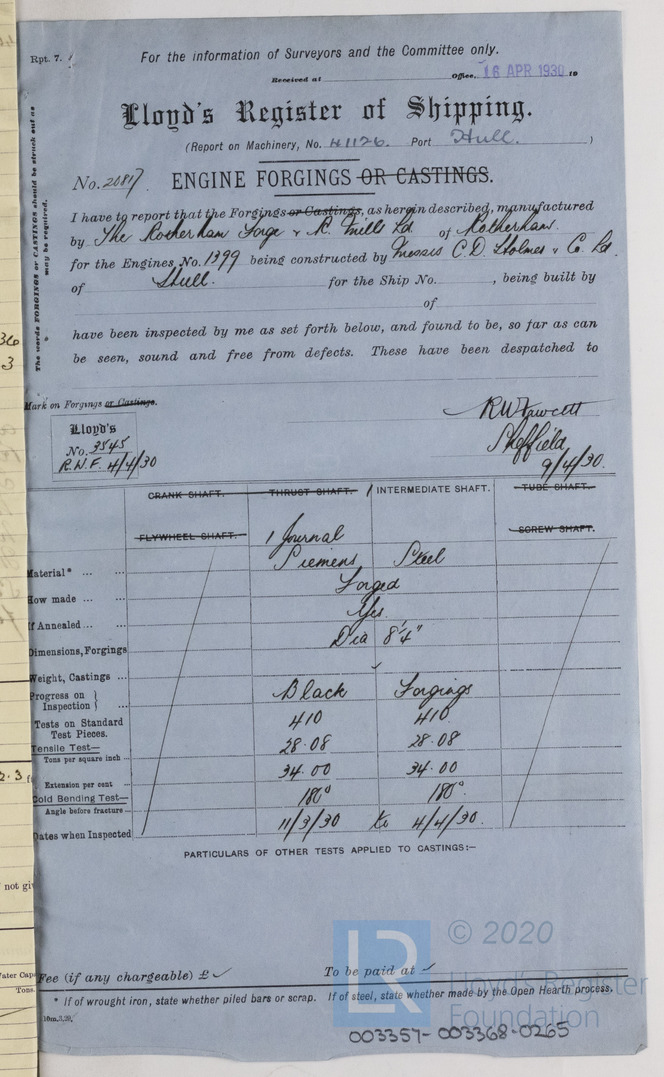 Rpt. 7.
For the information of Surveyors and the Committee only.
Received at Office, 16 APR 1930 19
Lloyd's Register of Shipping.
(Report on Machinery, No. 41126. Port Hull.)
No. 20817. ENGINE FORGINGS OR CASTINGS.
I have to report that the Forgings or Castings, as herein described, manufactured
by The Rotherham Forge & R. Mills Ld of Rotherham.
for the Engines No. 1399 being constructed by Messrs C.D. Holmes & Co. Ld.
of Hull. for the Ship No. , being built by
of
have been inspected by me as set forth below, and found to be, so far as can
be seen, sound and free from defects. These have been despatched to
The words FORGINGS or CASTINGS should be struck out as
may be required.
Mark on Forgings or Castings.
Lloyd's
No. 3545
R.W.F. 4/4/30
R W Fawcett
Sheffield
9/4/30.
CRANK SHAFT. THRUST SHAFT. 1 INTERMEDIATE SHAFT. TUBE SHAFT.
FLYWHEEL SHAFT. 1 Journal SCREW SHAFT.
Material* ... ... Siemens Steel
How made ... ... Forged
If Annealed ... ... Yes.
Dimensions, Forgings Dia 8¼"
Weight, Castings ...
Progress on Inspection Black Forgings
Tests on Standard Test Pieces. 410 410
Tensile Test—
Tons per square inch 28.08 28.08
Extension per cent 34.00 34.00
Cold Bending Test—
Angle before fracture 180° 180°
Dates when Inspected 11/3/30 to 4/4/30.
PARTICULARS OF OTHER TESTS APPLIED TO CASTINGS:—
Fee (if any chargeable) £ To be paid at
* If of wrought iron, state whether piled bars or scrap. If of steel, state whether made by the Open Hearth process.
10m,3,29.
© 2020
Lloyd's Register
Foundation
003357-003368-0265
36
3
2.3
not giv
Water Cap
Tons.